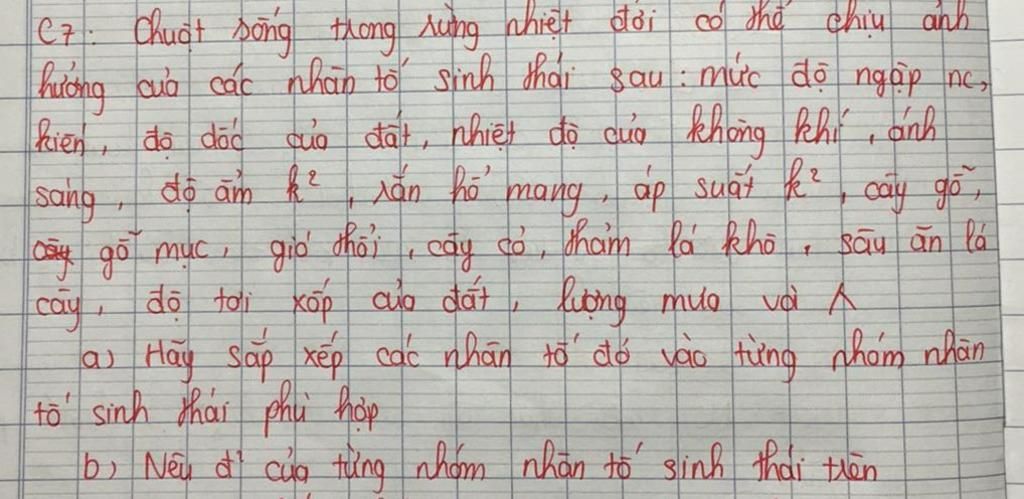 C7: Chuột sống trong rừng nhiệt đới có thể chịu ảnh
hưởng của các nhân tố sinh thái sau: mức độ ngập nc,
kiến, độ dốc của đất, nhiệt độ của không khí, ánh
sáng, độ ẩm k², rắn hổ mang, áp suất k², cây gỗ,
gỗ mục, gió thổi, cây cỏ, thảm lá khô, sâu ăn lá
cây, độ tơi xốp của đất, lượng mưa
a) Hãy sắp xếp các nhân tố đó vào từng nhóm nhân
tố sinh thái phù hợp
b) Nêu đ² của từng nhóm nhân tố sinh thái trên